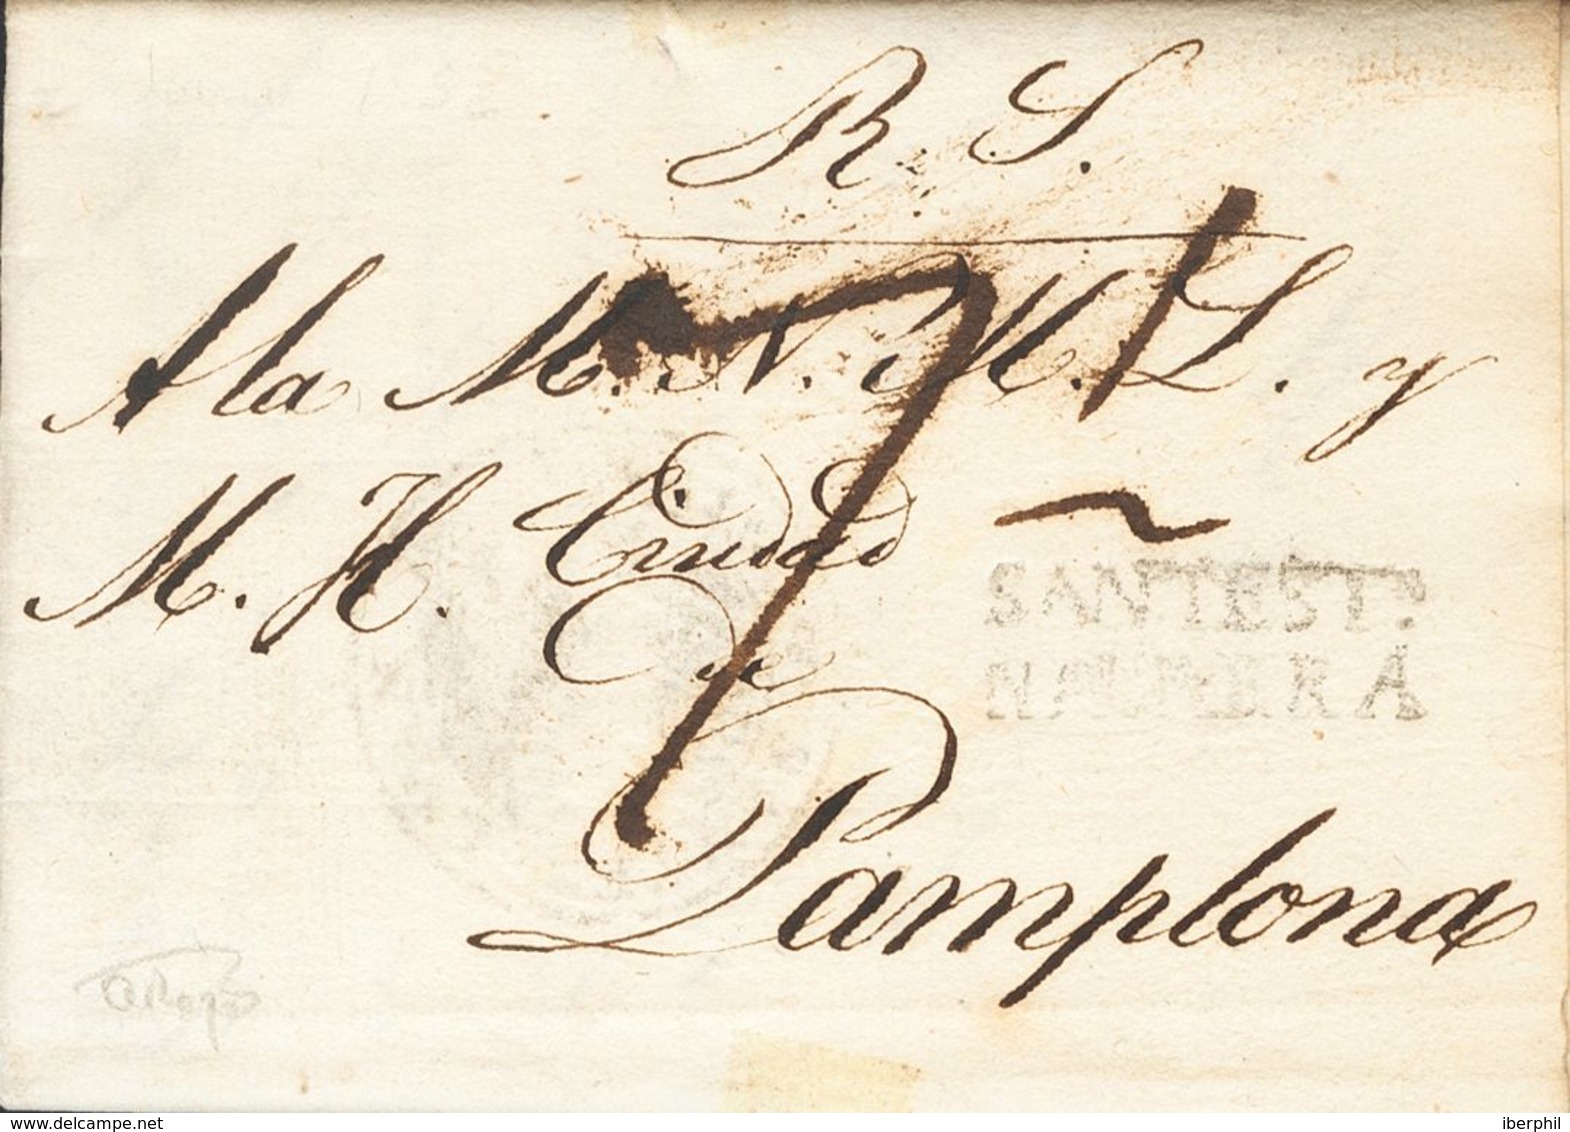 R. S.
A la M. N. M. L. y
M. H. Ciudad
de
Pamplona
7
SANTEST.
NAVARRA
delcampe.net
iberphil